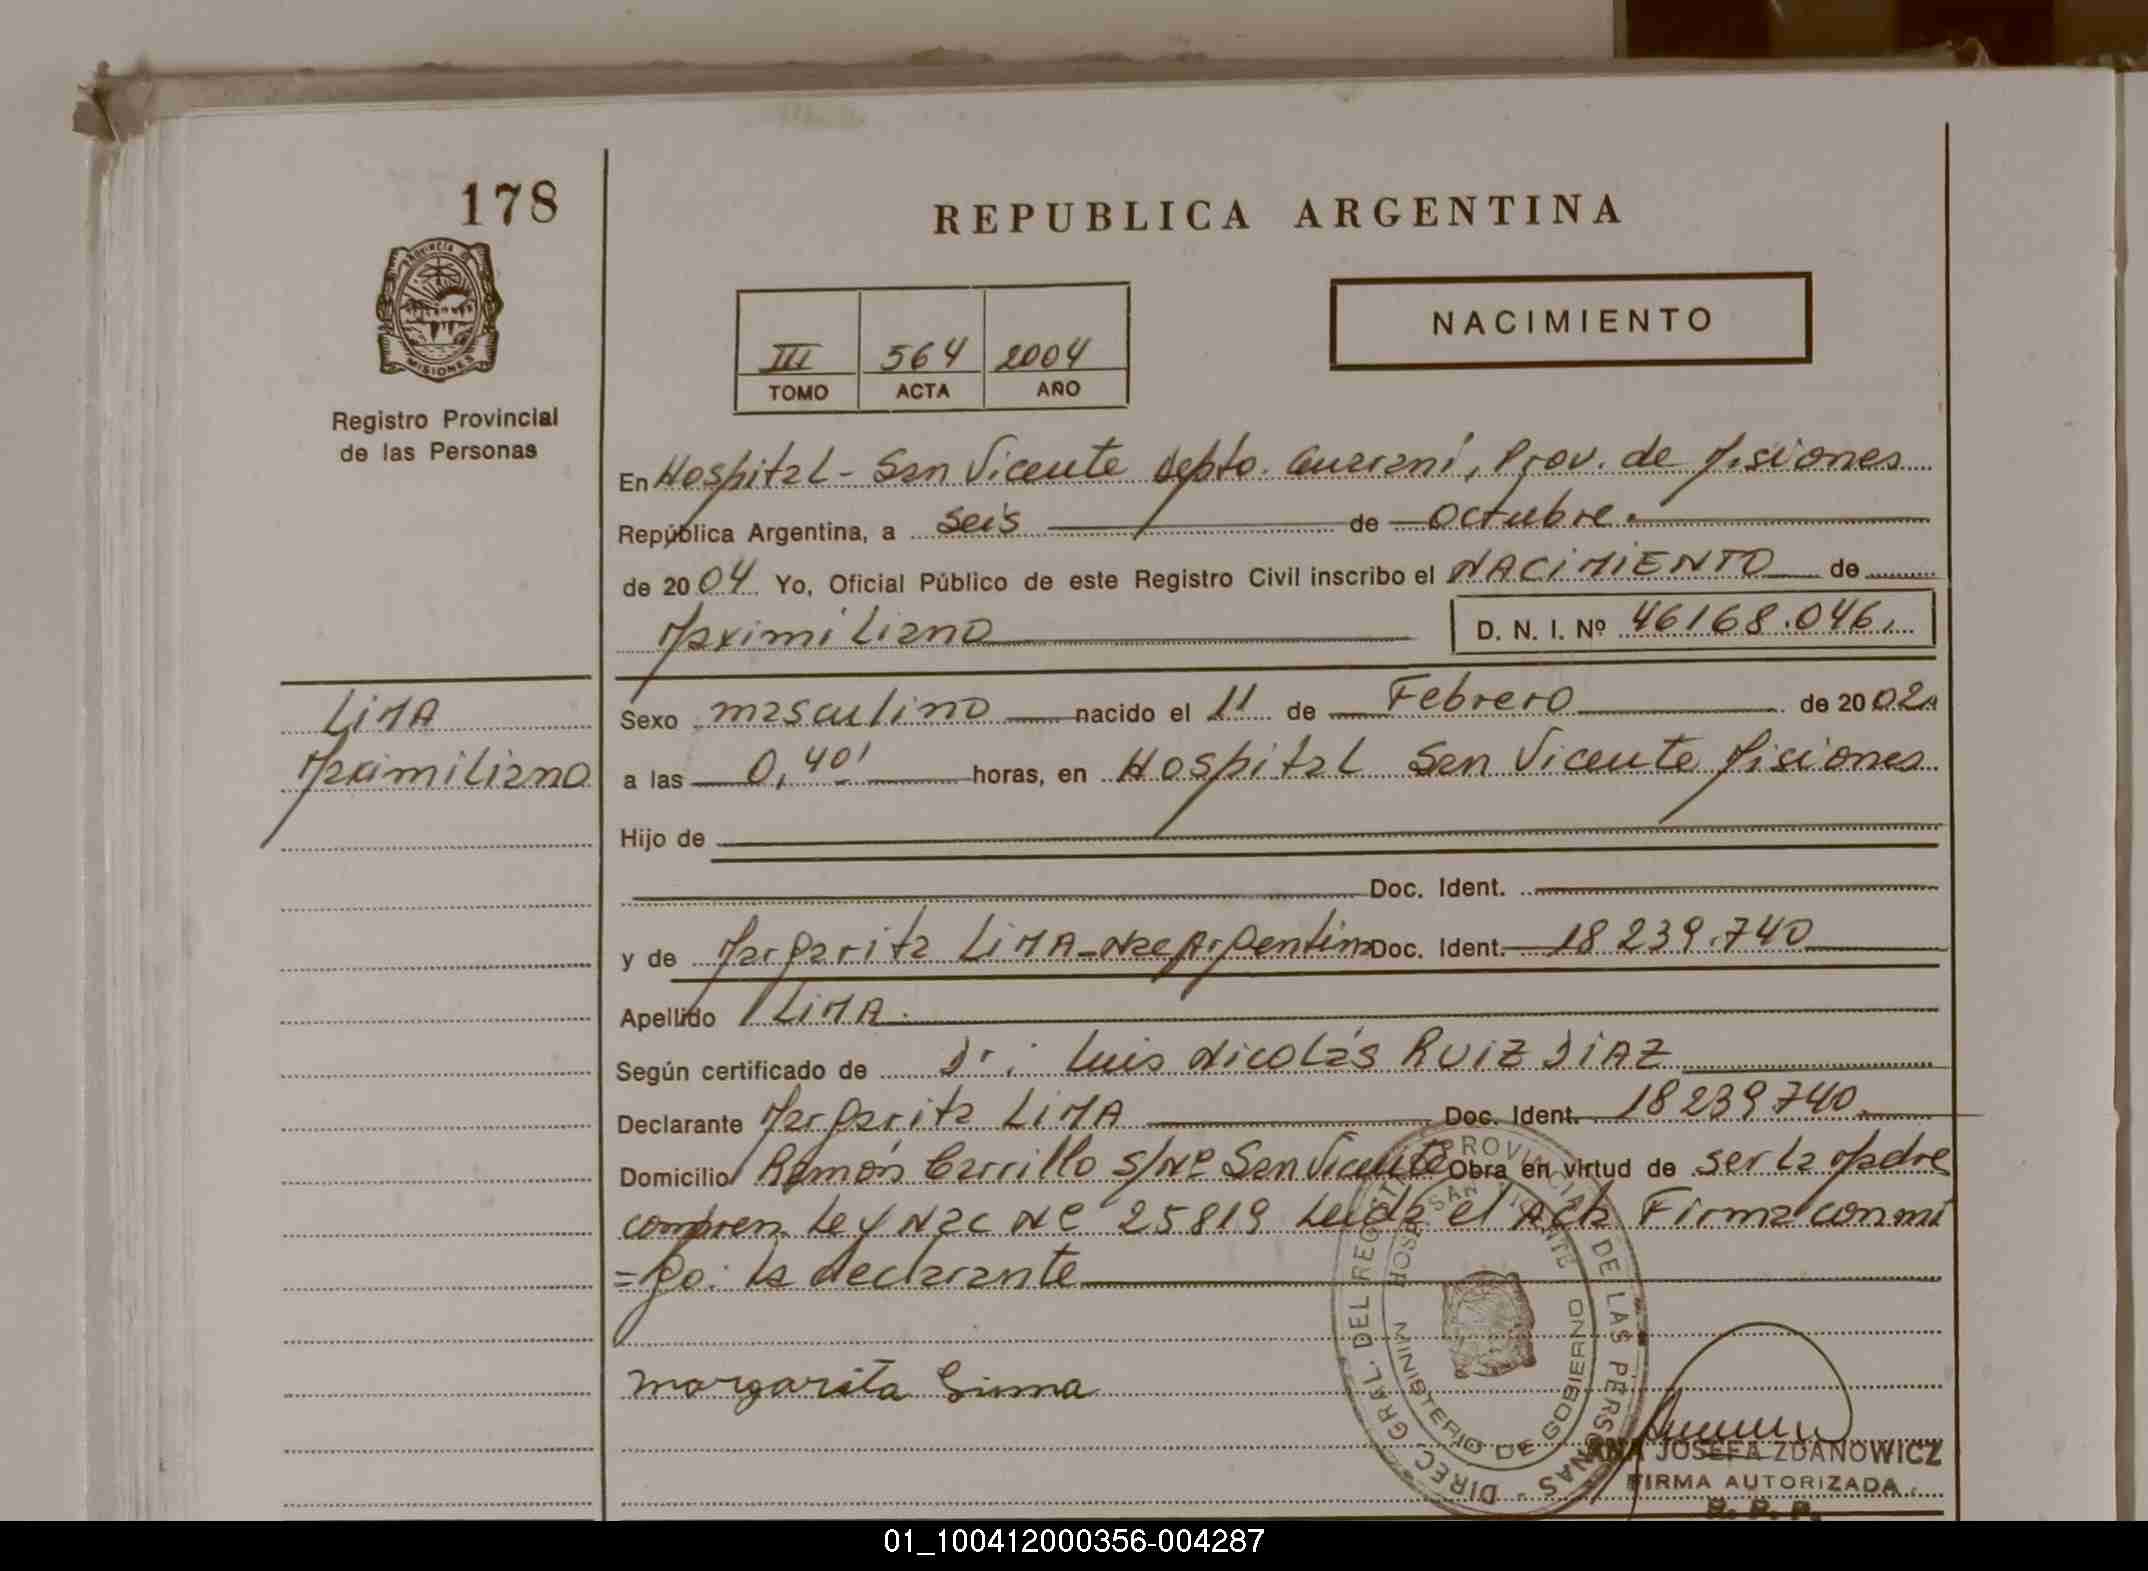 178
REPUBLICA ARGENTINA
PROVINCIA DE
MISIONES
NACIMIENTO
III 564 2004
TOMO ACTA AÑO
Registro Provincial
de las Personas
En Hospital - San Vicente Depto. Guaraní, Prov. de Misiones
República Argentina, a seis de octubre.
de 2004 Yo, Oficial Público de este Registro Civil inscribo el NACIMIENTO de
Maximiliano D. N. I. Nº 46168.046.
LIMA
Maximiliano
Sexo masculino nacido el 11 de Febrero de 2002
a las 0,40' horas, en Hospital San Vicente Misiones
Hijo de
Doc. Ident.
y de Margarita LIMA - Nac Argentina Doc. Ident. 18239.740
Apellido LIMA.
Según certificado de Dr: Luis Nicolás RUIZ DIAZ
Declarante Margarita LIMA Doc. Ident. 18239740.
Domicilio Ramón Carrillo S/Nº San Vicente Obra en virtud de ser la Madre
compren Ley Nac Nº 25819 Leida el Acta Firma conmi
=go: la declarante
margarita Lima
DIREC. GRAL. DEL REGISTRO PROVINCIAL DE LAS PERSONAS -
HOSP. SAN VICENTE
MINISTERIO DE GOBIERNO
ANA JOSEFA ZDANOWICZ
FIRMA AUTORIZADA
R. P. P.
01_100412000356-004287